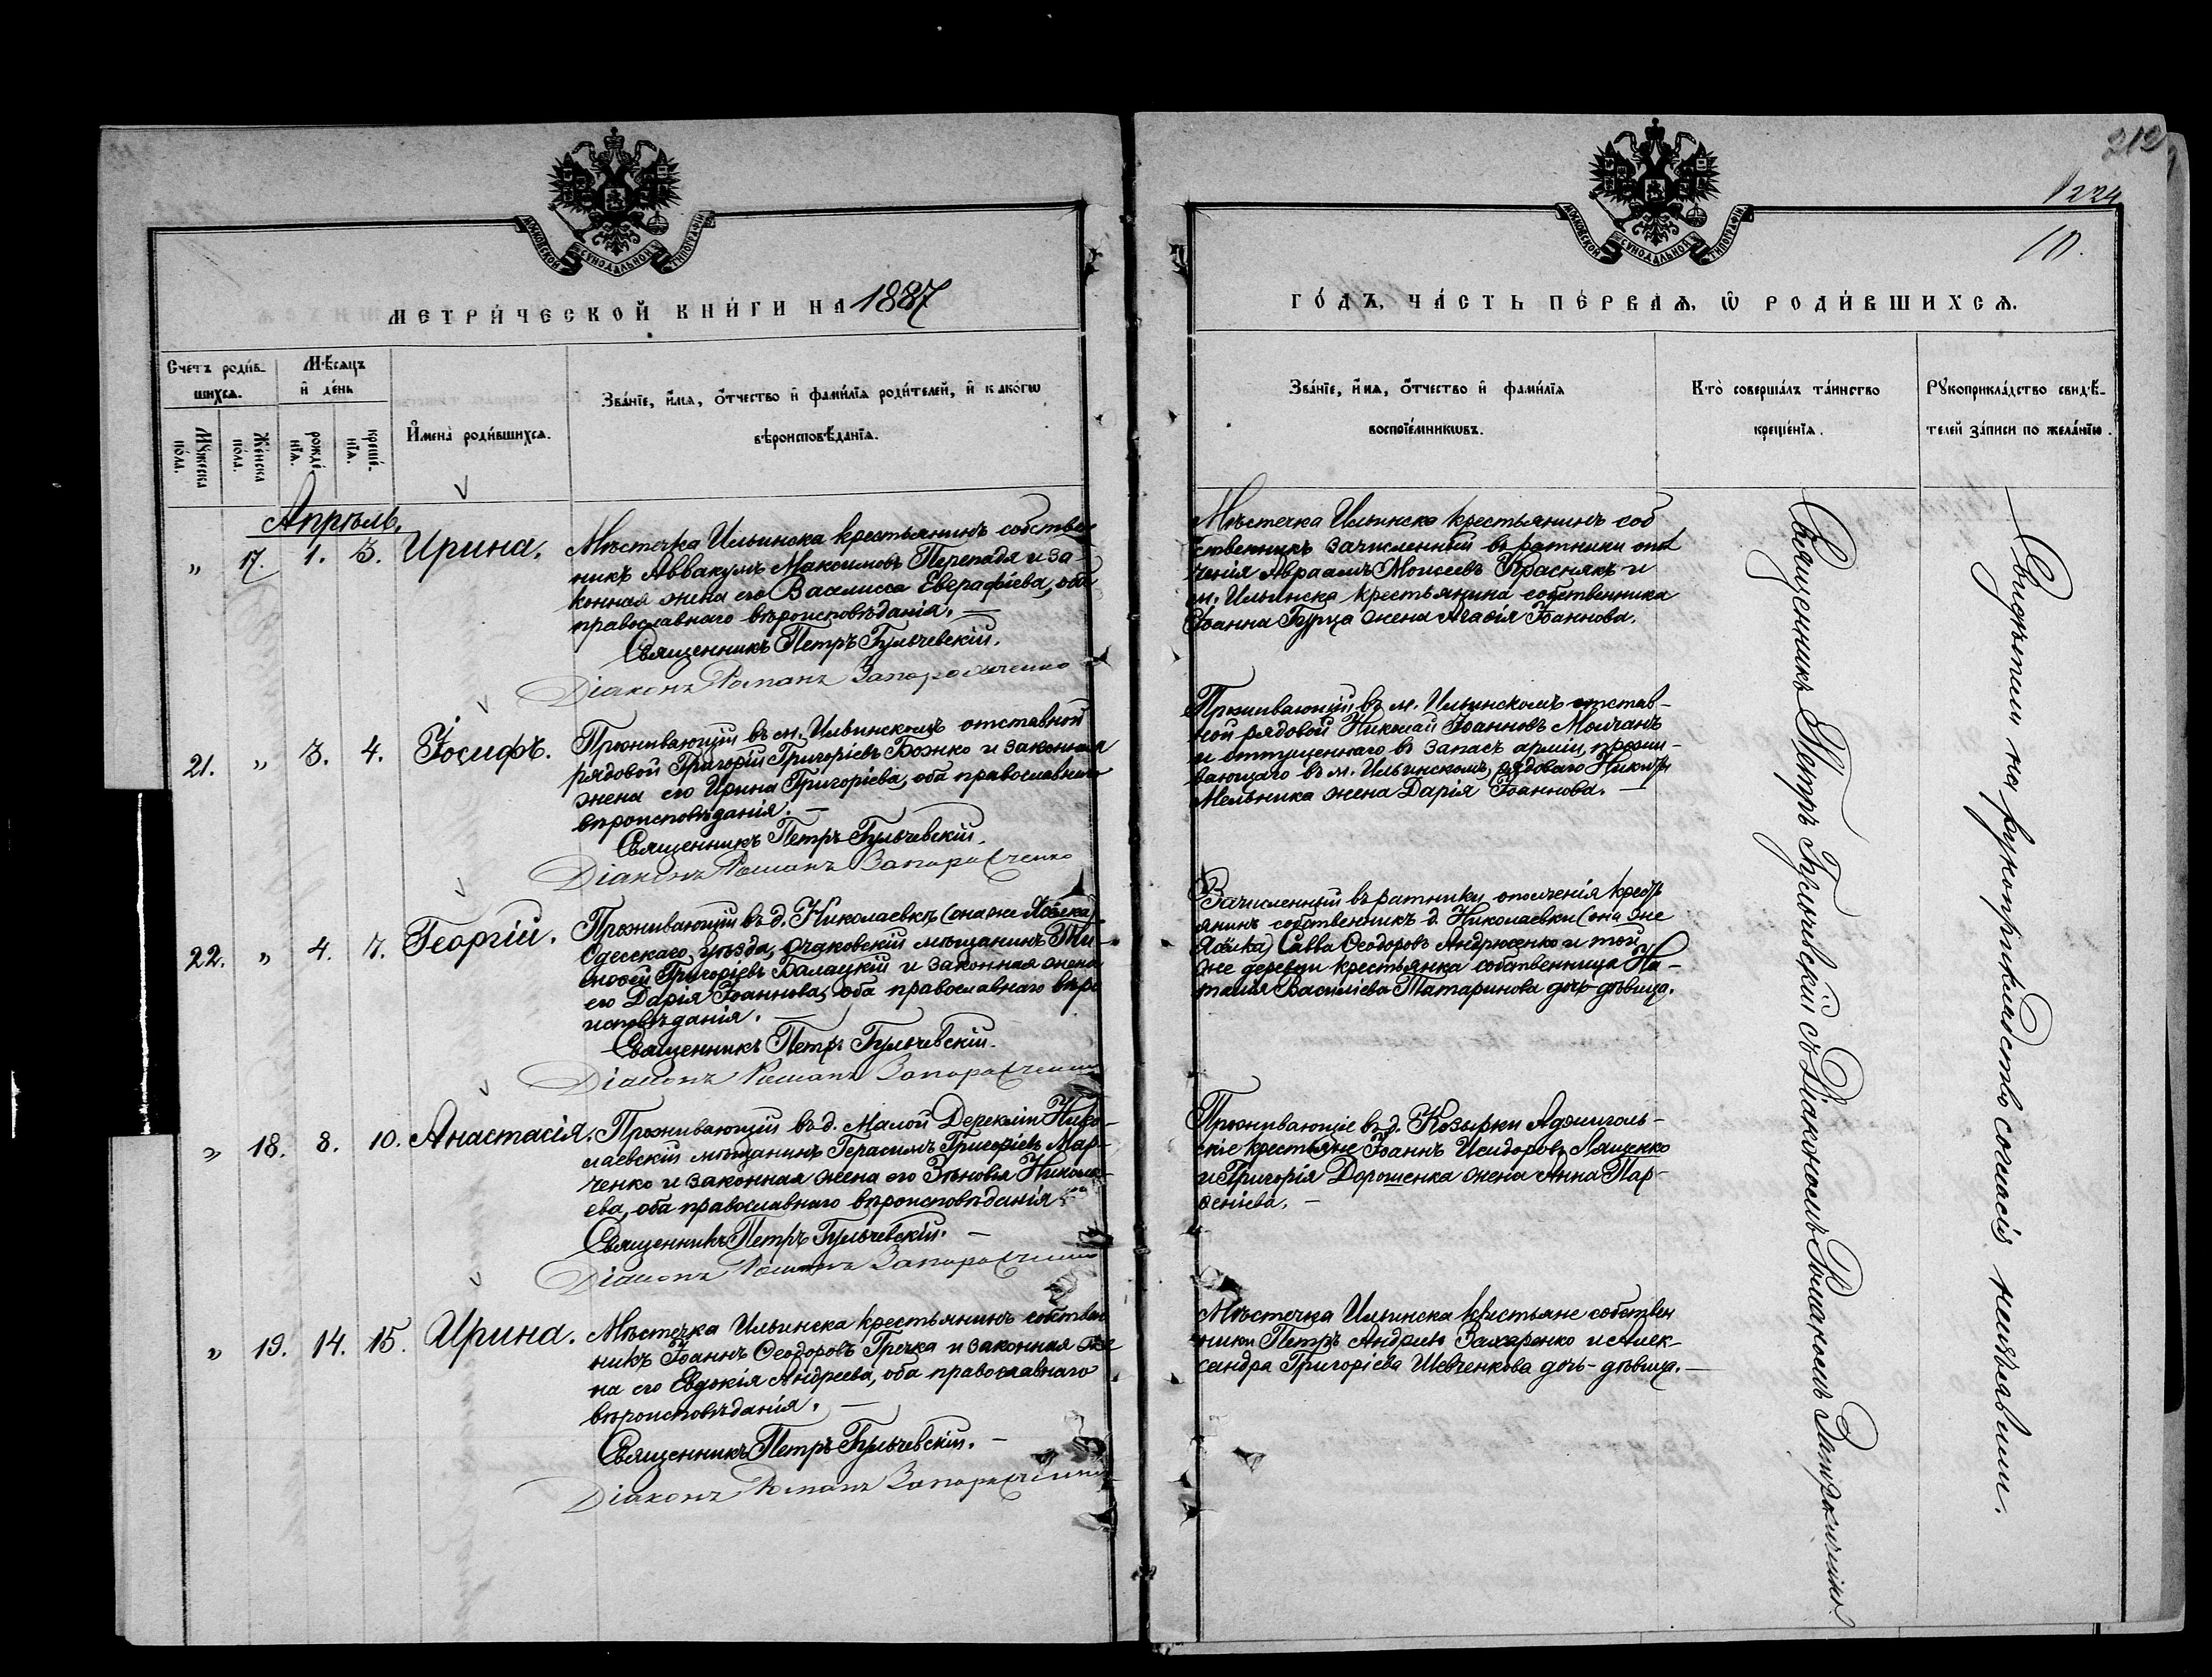 212
1224
10.
МОСКОВСКОЙ СѴНОДАЛЬНОЙ ТИПОГРАФІИ
МОСКОВСКОЙ СѴНОДАЛЬНОЙ ТИПОГРАФІИ
МЕТРИ́ЧЕСКОЙ КНИ́ГИ НА 1887
ГО́ДЪ, ЧА́СТЬ ПЕ́РВАѦ, Ѡ҆ РОДИ́ВШИХСѦ.
Счетъ роди́в-
шихсѧ.
Мѣ́сѧцъ
и҆ де́нь
Мꙋ́жеска по́ла.
Же́нска по́ла.
рожде́нїѧ.
креще́нїѧ.
И҆мена̀ роди́вшихсѧ.
Зва́нїе, и҆́мѧ, ѻ҆́тчество и҆ фамѝлїѧ роди́телей, и҆ како́гѡ
вѣроисповѣ́данїѧ.
Зва́нїе, и҆́мѧ, ѻ҆́тчество и҆ фамѝлїѧ
воспрїе́мникѡвъ.
Кто̀ соверша́лъ та́инство
креще́нїѧ.
Рꙋкоприкла́дство свидѣ́-
телей за́писи по жела́нїю.
Апрѣль.
" 17. 1. 3. Ирина.
Мѣстечка Ильинска крестьянинъ собствен
никъ Аввакумъ Максимовъ Перепадя и за
конная жена его Василисса Евграфіева, оба
православнаго вѣроисповѣданія. —
Священникъ Петръ Бульчевскій.
Діаконъ Романъ Запорожченко
Мѣстечка Ильинска крестьянинъ соб
ственникъ зачисленный въ ратники опол
ченія Авраамъ Моисеевъ Краснякъ и
м. Ильинска крестьянина собственника
Іоанна Бурца жена Агаѳія Іоаннова.
21. " 3. 4. Іосифъ.
Проживающій въ м. Ильинскомъ отставной
рядовой Григорій Григоріевъ Божко и законная
жена его Ирина Григоріева, оба православнаго
вѣроисповѣданія. —
Священникъ Петръ Бульчевскій.
Діаконъ Романъ Запорожченко
Проживающій въ м. Ильинскомъ отстав-
ной рядовой Николай Іоанновъ Молчанъ
и отпущеннаго въ запасъ арміи, прожи-
вающаго въ м. Ильинскомъ, рядоваго Никиты
Мельника жена Дарія Іоаннова. —
22. " 4. 7. Георгій.
Проживающій въ д. Николаевкѣ (она же Яселка)
Одесскаго уѣзда, очаковскій мѣщанинъ Ти-
моѳей Григоріевъ Балацкій и законная жена
его Дарія Іоаннова, оба православнаго вѣро
исповѣданія. —
Священникъ Петръ Бульчевскій.
Діаконъ Романъ Запорожченко
Зачисленный въ ратники ополченія кресть
янинъ собственникъ д. Николаевки (она же
Яселка) Савва Ѳеодоровъ Андрюсенко и той
же деревни крестьянка собственница На-
талія Василіева Татаринова дочь-дѣвица.
" 18. 8. 10. Анастасія.
Проживающій въ д. Малой Дереклеи Нико-
лаевскій мѣщанинъ Герасимъ Григоріевъ Мар-
ченко и законная жена его Зѣновія Никола-
ева, оба православнаго вѣроисповѣданія.
Священникъ Петръ Бульчевскій. —
Діаконъ Романъ Запорожченко
Проживающіе въ д. Козырки Аджиголь-
скіе крестьяне Іоаннъ Исидоровъ Лященко
и Григорія Дорошенка жена Анна Пар-
ѳеніева. —
" 19. 14. 15. Ирина.
Мѣстечка Ильинска крестьянинъ собствен
никъ Іоаннъ Ѳеодоровъ Гречка и законная же
на его Евдокія Андреева, оба православнаго
вѣроисповѣданія. —
Священникъ Петръ Бульчевскій. —
Діаконъ Романъ Запорожченко
Мѣстечка Ильинска крестьяне собствен
ники Петръ Андреевъ Захаренко и Алек-
сандра Григоріева Шевченкова дочь-дѣвица. —
Священникъ Петръ Бульчевскій съ Діакономъ Романомъ Запорожченко
Свидѣтели на рукоприкладство согласія неизъявили.